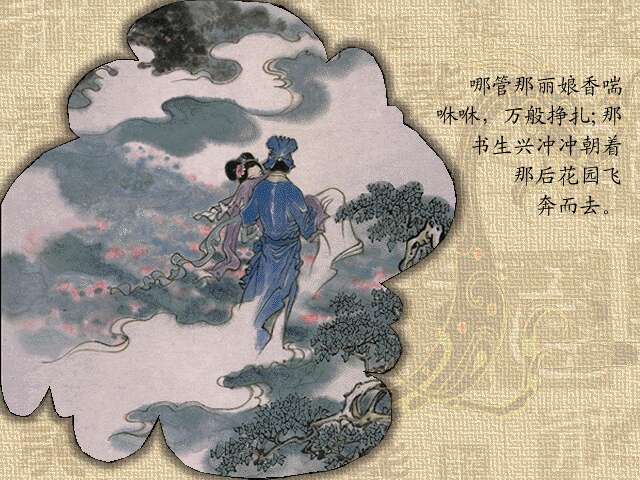 哪管那丽娘香喘
咻咻，万般挣扎；那
书生兴冲冲朝着
那后花园飞
奔而去。